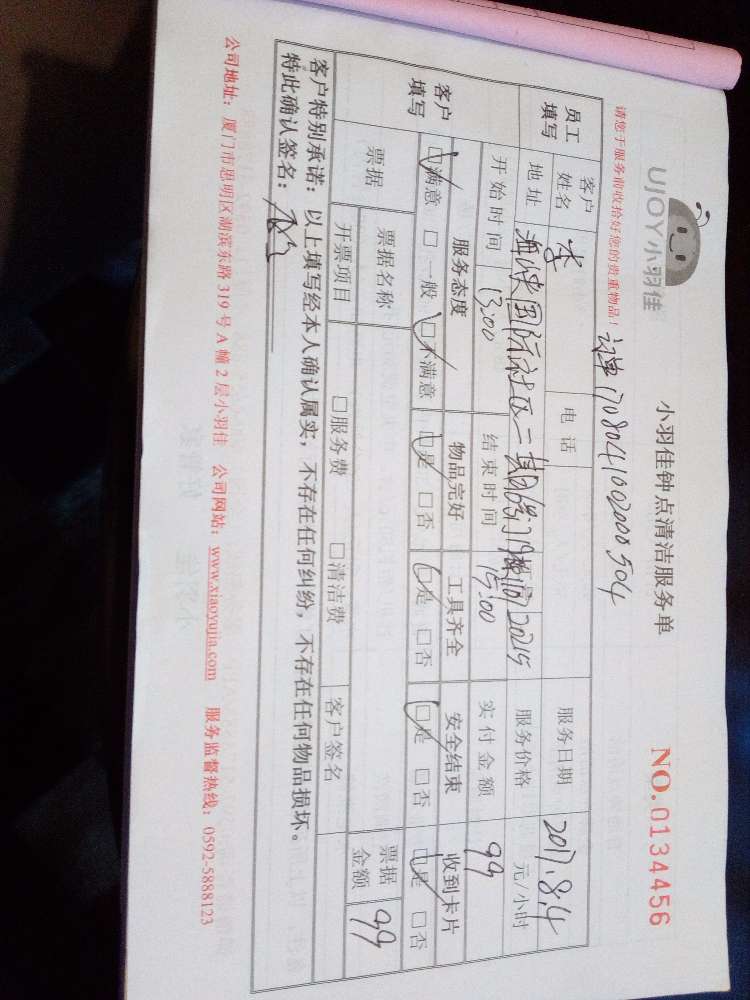 UJOY小羽佳
小羽佳钟点清洁服务单
NO.0134456
请您于服务前收拾好您的贵重物品！
订单170804100200504
员工填写 客户姓名 李 电话 服务日期 2017.8.4
地址 国际社区二期 服务价格 元/小时
开始时间 13:00 结束时间 15:00 实付金额 99
客户填写 服务态度 物品完好 工具齐全 安全结束 收到卡片
☑满意 □一般 ☑不满意 ☑是 □否 ☑是 □否 ☑是 □否 ☑是 □否
票据 票据名称 票据金额 99
开票项目 □服务费 □清洁费 客户签名
客户特别承诺：以上填写经本人确认属实，不存在任何纠纷，不存在任何物品损坏。
特此确认签名：
公司地址：厦门市思明区湖滨东路319号A幢2层小羽佳 公司网站：www.xiaoyujia.com 服务监督热线：0592-5888123